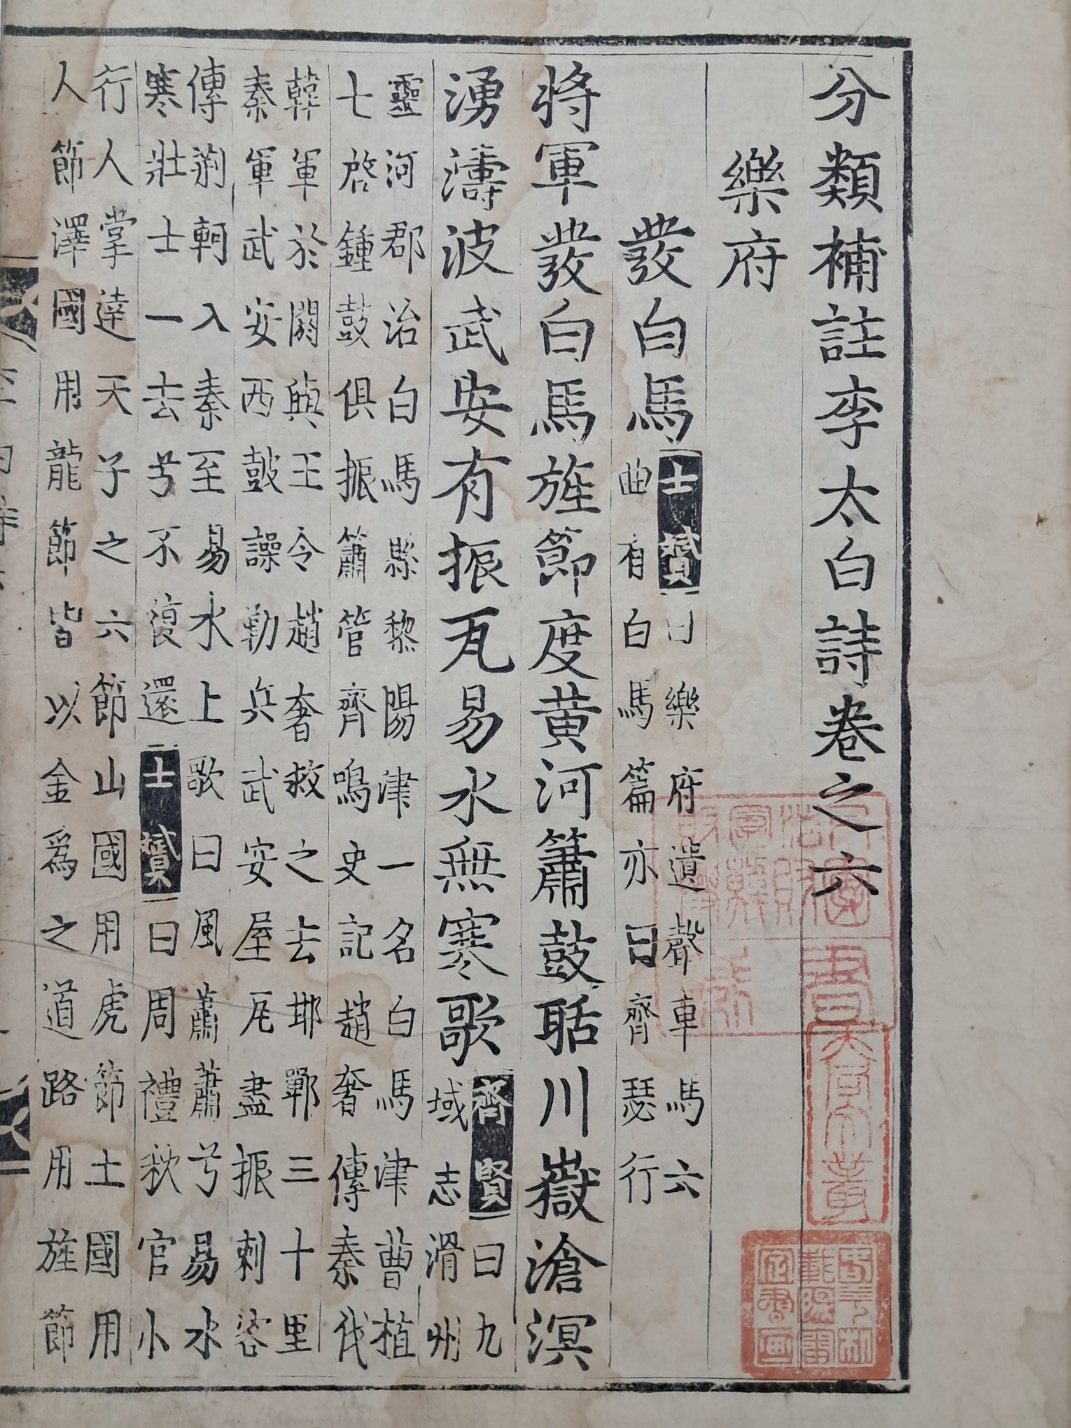 分類補註李太白詩卷之六
樂府
發白馬士贇曰樂府遺聲車馬六
曲有白馬篇亦曰齊瑟行
將軍發白馬旌節度黄河簫鼓聒川嶽滄溟
湧濤波武安有振瓦易水無寒歌齊賢曰九
域志滑州
靈河郡治白馬縣黎陽津一名白馬津曹植
七啓鍾鼓俱振簫管齊鳴史記趙奢傳秦伐
韓軍於閼與王令趙奢救之去邯鄲三十里
秦軍武安西鼓譟勒兵武安屋瓦盡振刺客
傳荊軻入秦至易水上歌曰風蕭蕭兮易水
寒壯士一去兮不復還士贇曰周禮秋官小
行人掌達天子之六節山國用虎節土國用
人節澤國用龍節皆以金爲之道路用旌節